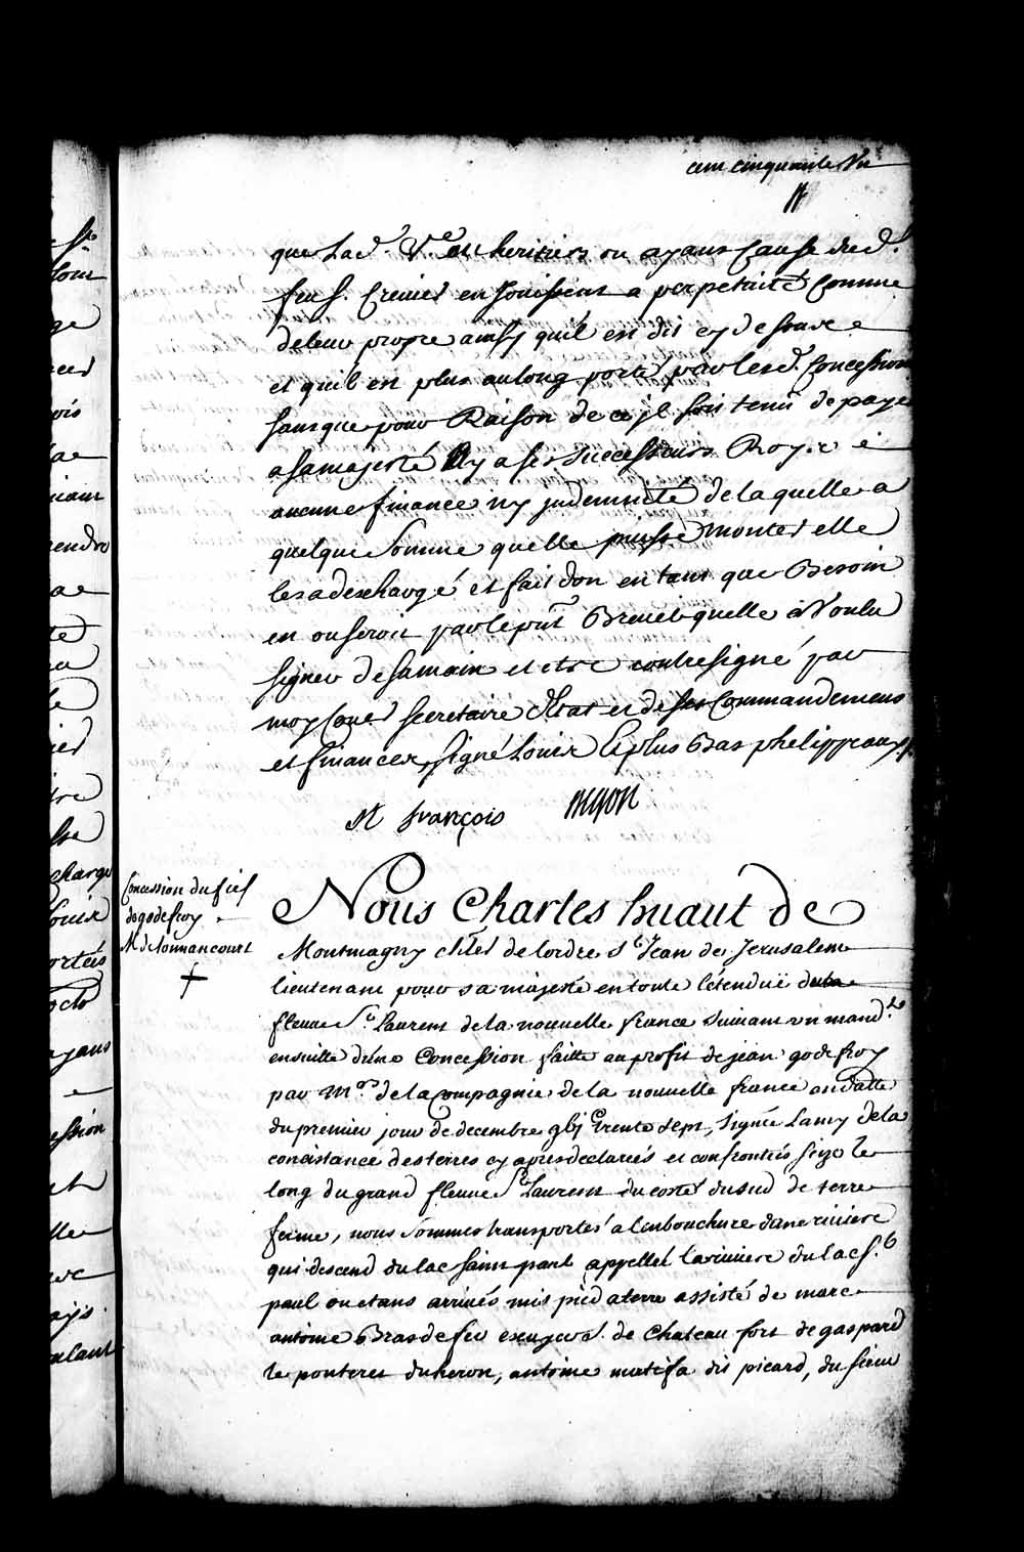 cent cinquante Un
que Lad.e V.e ou heritiers ou ayans Cause dud.
feu S. Crevier en Jouissent a perpetuité Comme
deleur propre ainsy quil est dit cy dessus e
et quil est plus aulong porté par lesd. Concession
sans que pour Raison de ce jl soit tenu de paye
asamajesté Ny a ses successeurs Roys
aucune finance ny jndemnité de laquelle a
quelque Somme quelle puisse monter elle
les a dechargé et fait don en tant que Besoin
en ou seroit par le pnt Brevet quelle a Voulu
signer desamain et etre contresigné par
moy Coner Secretaire d'Etat et de ses Commandemens
et finances, signé Louis Et plus Bas phelippeaux
N françois begon
Concession du fief
de godefroy
Mr de tonnancourt
Nous Charles huaut de
Montmagny chler de lordre St Jean de Jerusalem
lieutenant pour sa majesté en toute létenduë du
fleuve St Laurent de la nouvelle france suivant un mand.t
ensuitte d'une Concession faitte au profit de jean godefroy
par Mrs de la Compagnie de la nouvelle france en datte
du premier jour de decembre gbj Trente sept, Signée Lamy de la
consistance des terres cy apres declarés et confrontés size le
long du grand fleuve St Laurent du costé du sud de terre
ferme, nous sommes transportés a l'enbouchure dune riviere
qui descend du lac saint paul appellée la riviere du lac S.t
paul ou etans arrivés mis pied a terre assisté de marc
antoine Brasdefer de Chateau fort de gaspard
le pouteret duheron, antoine dit picard, du sieur